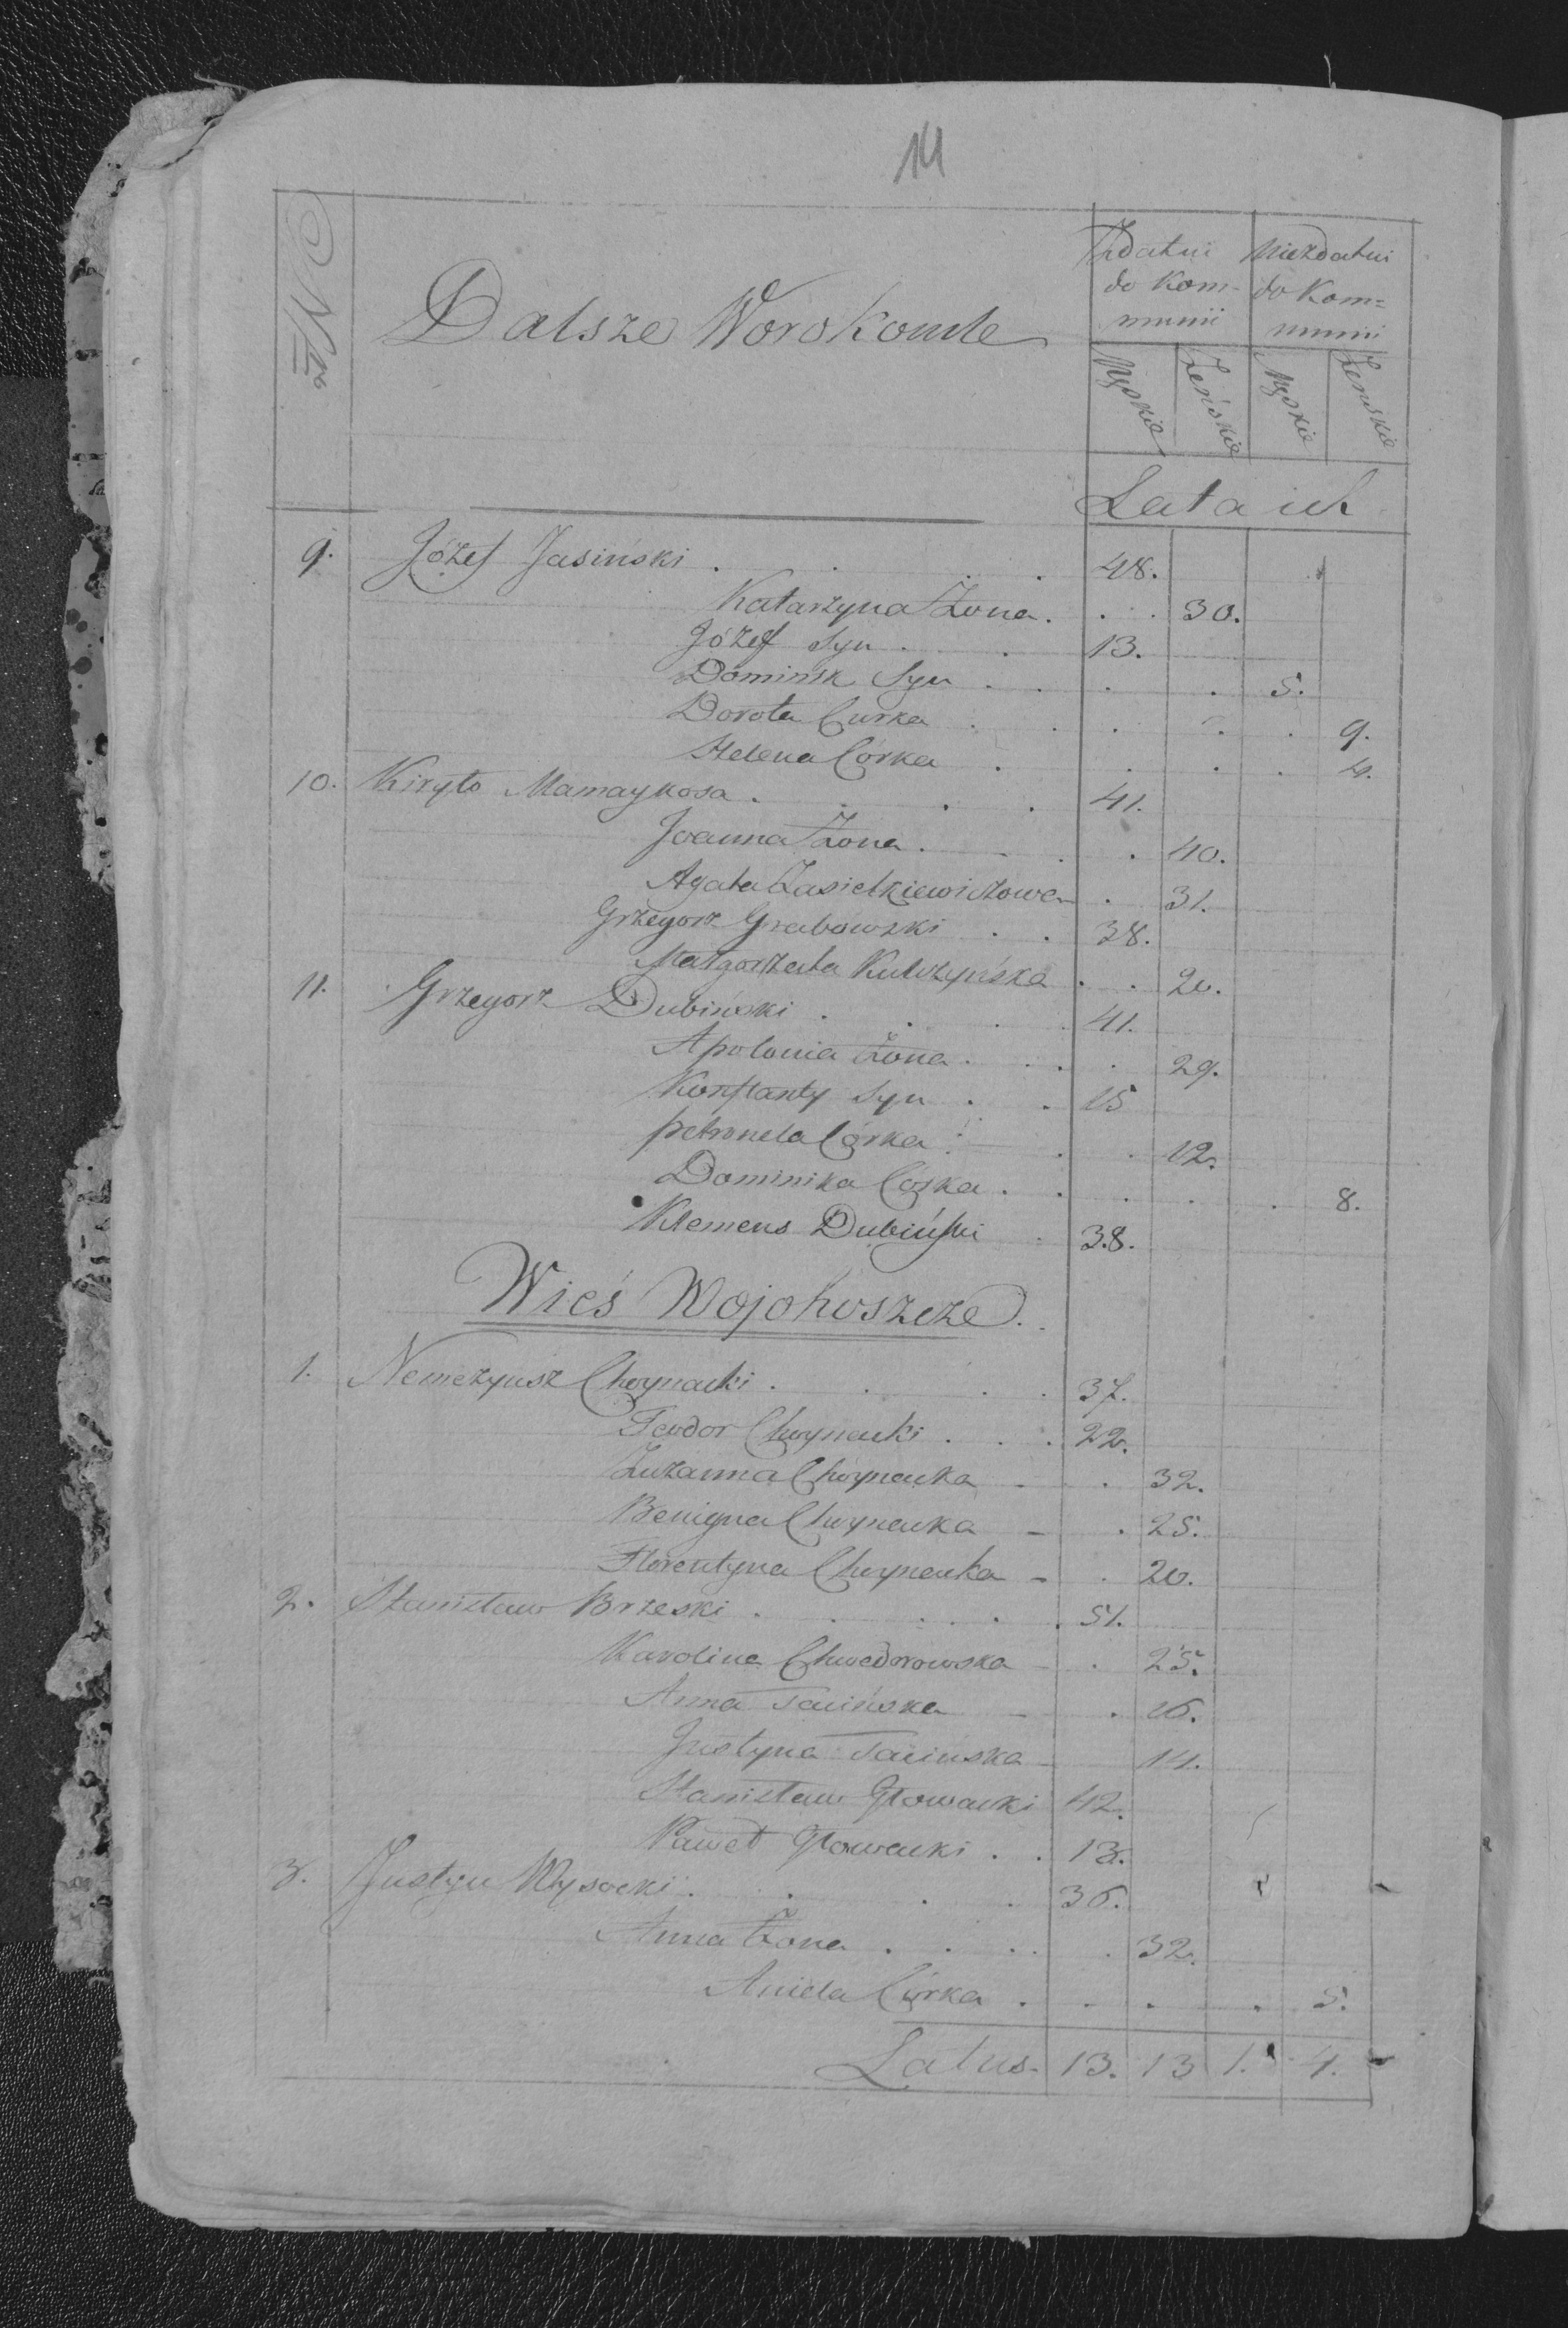 14
Nr
Dalsze Worokomle
Zdatni do Kom-munii
Niezdatni do Kom=munii
Męskie
Żeńskie
Męskie
Żenskie
Lata ich
9. Józef Jasiński . . . . 48.
Katarzyna Żona . . . 30.
Józef Syn . . 13.
Dominik Syn . . . . 5.
Dorota Curka . . . . . 9.
Helena Córka . . . . 4.
10. Kiryło Mamaykosa . . . . 41.
Joanna Żona . . . . 40.
Agata . 31.
Grzegorz Grabowski . . 38.
Małgorzata Kulczyńska . . 20.
11. Grzegorz Dubiński . . . . 41.
Apolonia Żona . . . . 29.
Konstanty Syn . . 15
Petronela Córka . . . 12.
Dominika Córka . . . . . 8.
Klemens Dubiński . 38.
Wieś Wojohoszcze.
1. Nemezyusz Choynacki . . . . 37.
Teodor Choynacki . . . 22.
Zuzanna Choynacka - . 32.
Benigna Choynacka - . 25.
Florentyna Choynacka - . 20.
2. Stanisław Brzeski . . . . . 51.
Karolina Chwedorowska - . 25.
Anna - . 16.
Justyna - 14.
Stanisław Głowacki 42.
Paweł Głowacki . . 13.
3. Justyn Wysocki . . . . 36.
Anna Żona . . . . . 32.
Aniela Córka . . . . 5.
Latus. 13. 13 1. 4.